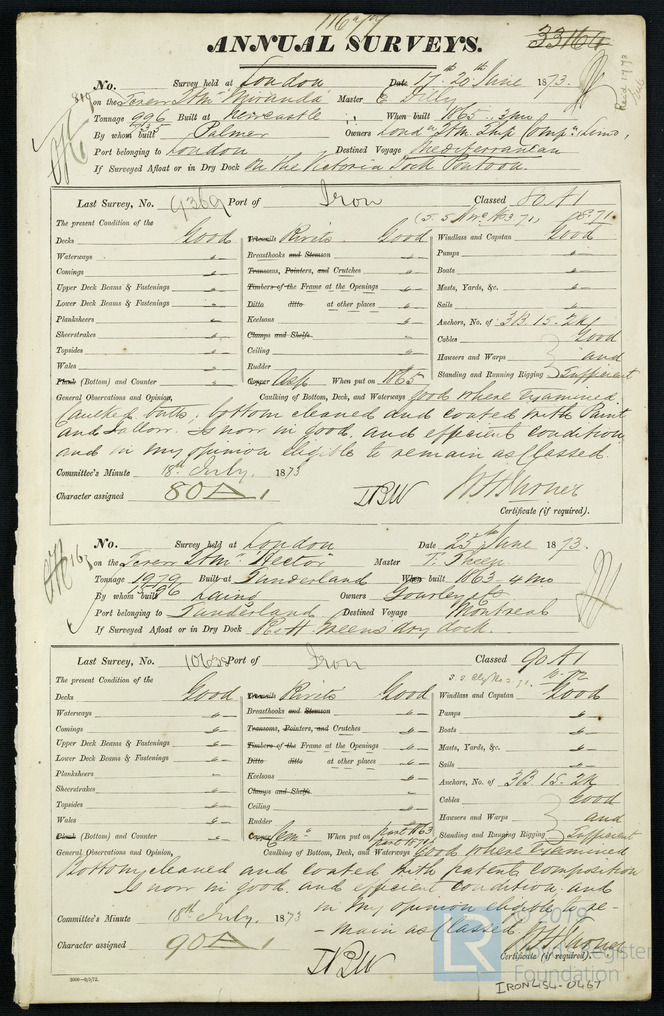 ANNUAL SURVEYS.
33164
No. Survey held at London Date 17th 20th June 1873.
819 on the Screw Str "Miranda" Master E Dilly
Tonnage 996 Built at Newcastle When built 1865 .. 3mo
By whom built Palmer Owners
Port belonging to London Destined Voyage Mediterranean
If Surveyed Afloat or in Dry Dock On the Victoria Dock Pontoon.
Last Survey, No. 9369 Port of Iron Classed 80 A1
The present Condition of the
Decks Good Treenails Rivets Good Windlass and Capstan Good
Waterways " Breasthooks and Stemson " Pumps "
Comings " Transoms, Pointers, and Crutches " Boats "
Upper Deck Beams & Fastenings " Timbers of the Frame at the Openings " Masts, Yards, &c. "
Lower Deck Beams & Fastenings " Ditto ditto at other places " Sails "
Planksheers " Keelsons " Anchors, No. of 3B. 1S. 2K
Sheerstrakes " Clamps and Shelfs " Cables Good
Topsides " Ceiling " Hawsers and Warps and
Wales " Rudder " Standing and Running Rigging Sufficient
Plank (Bottom) and Counter " Copper When put on 1865
General Observations and Opinion, Caulking of Bottom, Deck, and Waterways good where examined.
Caulked butts; bottom cleaned and coated with Paint
and Tallow. Is now in good and efficient condition
and in my opinion eligible to remain as Classed.
Committee's Minute 18th July, 1873
Character assigned 80 A 1
Certificate (if required).
No. Survey held at London Date 25th June 1873.
16 on the Screw Str "Hector" Master
Tonnage 1979 Built at Sunderland When built 1863 - 4 mo
By whom built Laing Owners Gourley & Co
Port belonging to Sunderland Destined Voyage Montreal
If Surveyed Afloat or in Dry Dock R & H Greens dry dock.
Last Survey, No. 10638 Port of Iron Classed 90 A1
The present Condition of the
Decks Good Treenails Rivets Good Windlass and Capstan Good
Waterways " Breasthooks and Stemson " Pumps "
Comings " Transoms, Pointers, and Crutches " Boats "
Upper Deck Beams & Fastenings " Timbers of the Frame at the Openings " Masts, Yards, &c. "
Lower Deck Beams & Fastenings " Ditto ditto at other places " Sails "
Planksheers " Keelsons " Anchors, No. of 3B. 1S. 2K
Sheerstrakes " Clamps and Shelfs Cables Good
Topsides " Ceiling " Hawsers and Warps and
Wales " Rudder " Standing and Running Rigging Sufficient
Plank (Bottom) and Counter " Copper Cemt When put on part 1863
General Observations and Opinion, Caulking of Bottom, Deck, and Waterways Good where examined
Bottom cleaned and coated with patent composition
Is now in good and efficient condition, and
in my opinion eligible to re-
-main as Classed
Committee's Minute 18th July, 1873
Character assigned 90 A 1
Certificate (if required).
© 2019
Lloyd's Register
Foundation
LR
IRON454-0467